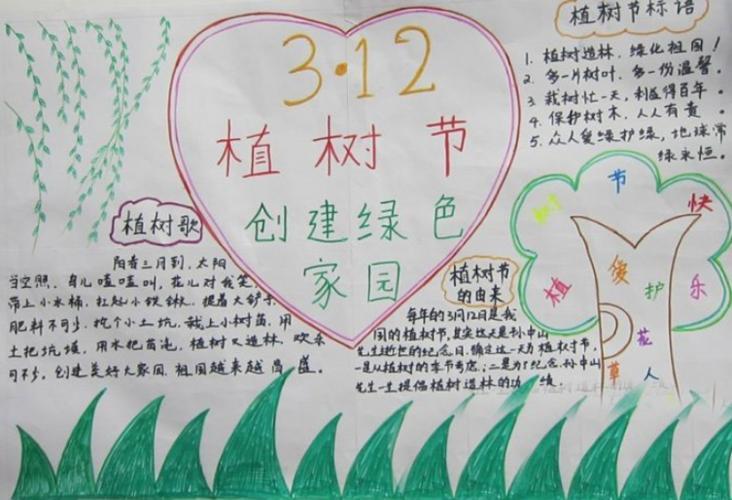 3·12
植树节
创建绿色
家园
植树节标语
1. 植树造林，绿化祖国！
2. 多一片树叶，多一份温馨。
3. 栽树忙一天，利益得百年。
4. 保护树木，人人有责。
5. 众人爱绿护绿，地球常
绿永恒。
植树歌
阳春三月到，太阳
当空照，鸟儿喳喳叫，花儿对我笑
带上小水桶，扛起小铁锹，提着大铲子
肥料不可少，挖个小土坑，栽上小树苗，用
土把坑填，用水把苗浇，植树又造林，欢乐
可不少，创建美好大家园，祖国越来越昌盛。
植树节
的由来
每年的3月12日是我
国的植树节，其实这天是孙中山
先生逝世的纪念日，确定这一天为植树节，
一是从植树的季节考虑；二是为了纪念孙中山
先生一生提倡植树造林的功绩
植树节快乐
爱护花草人